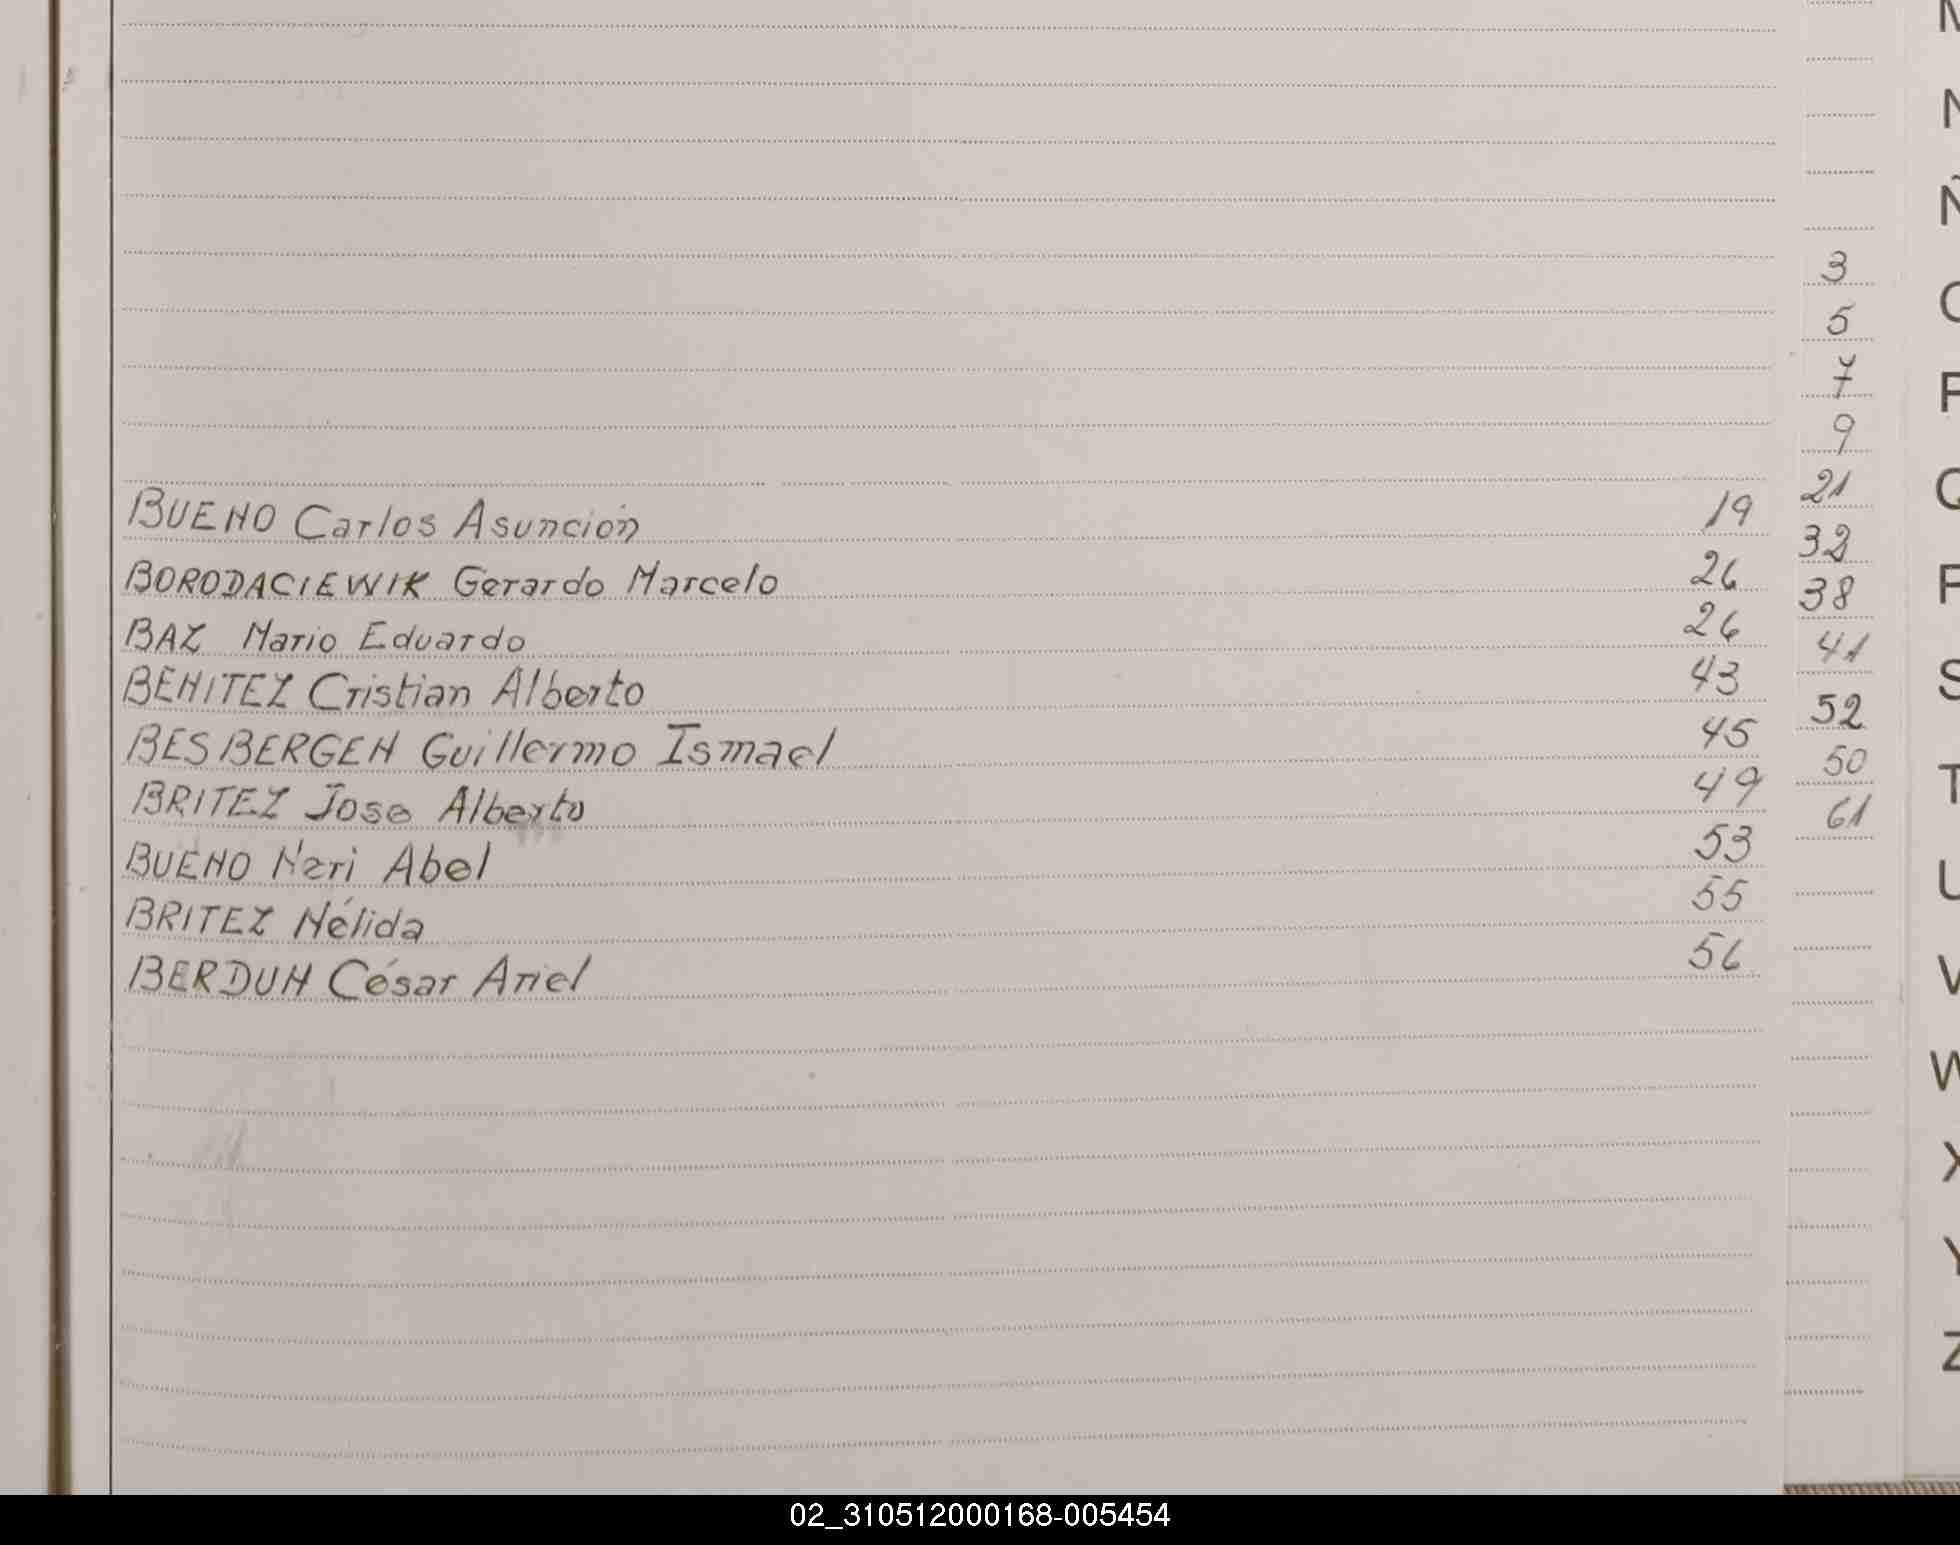 BUENO Carlos Asunción 19
BORODACIEWIK Gerardo Marcelo 26
BAZ Mario Eduardo 26
BENITEZ Cristian Alberto 43
BESBERGEN Guillermo Ismael 45
BRITEZ Jose Alberto 49
BUENO Neri Abel 53
BRITEZ Nélida 55
BERDUN César Ariel 56
3
5
7
9
21
32
38
41
52
50
61
N
Ñ
O
P
Q
R
S
T
U
V
W
X
Y
Z
02_310512000168-005454